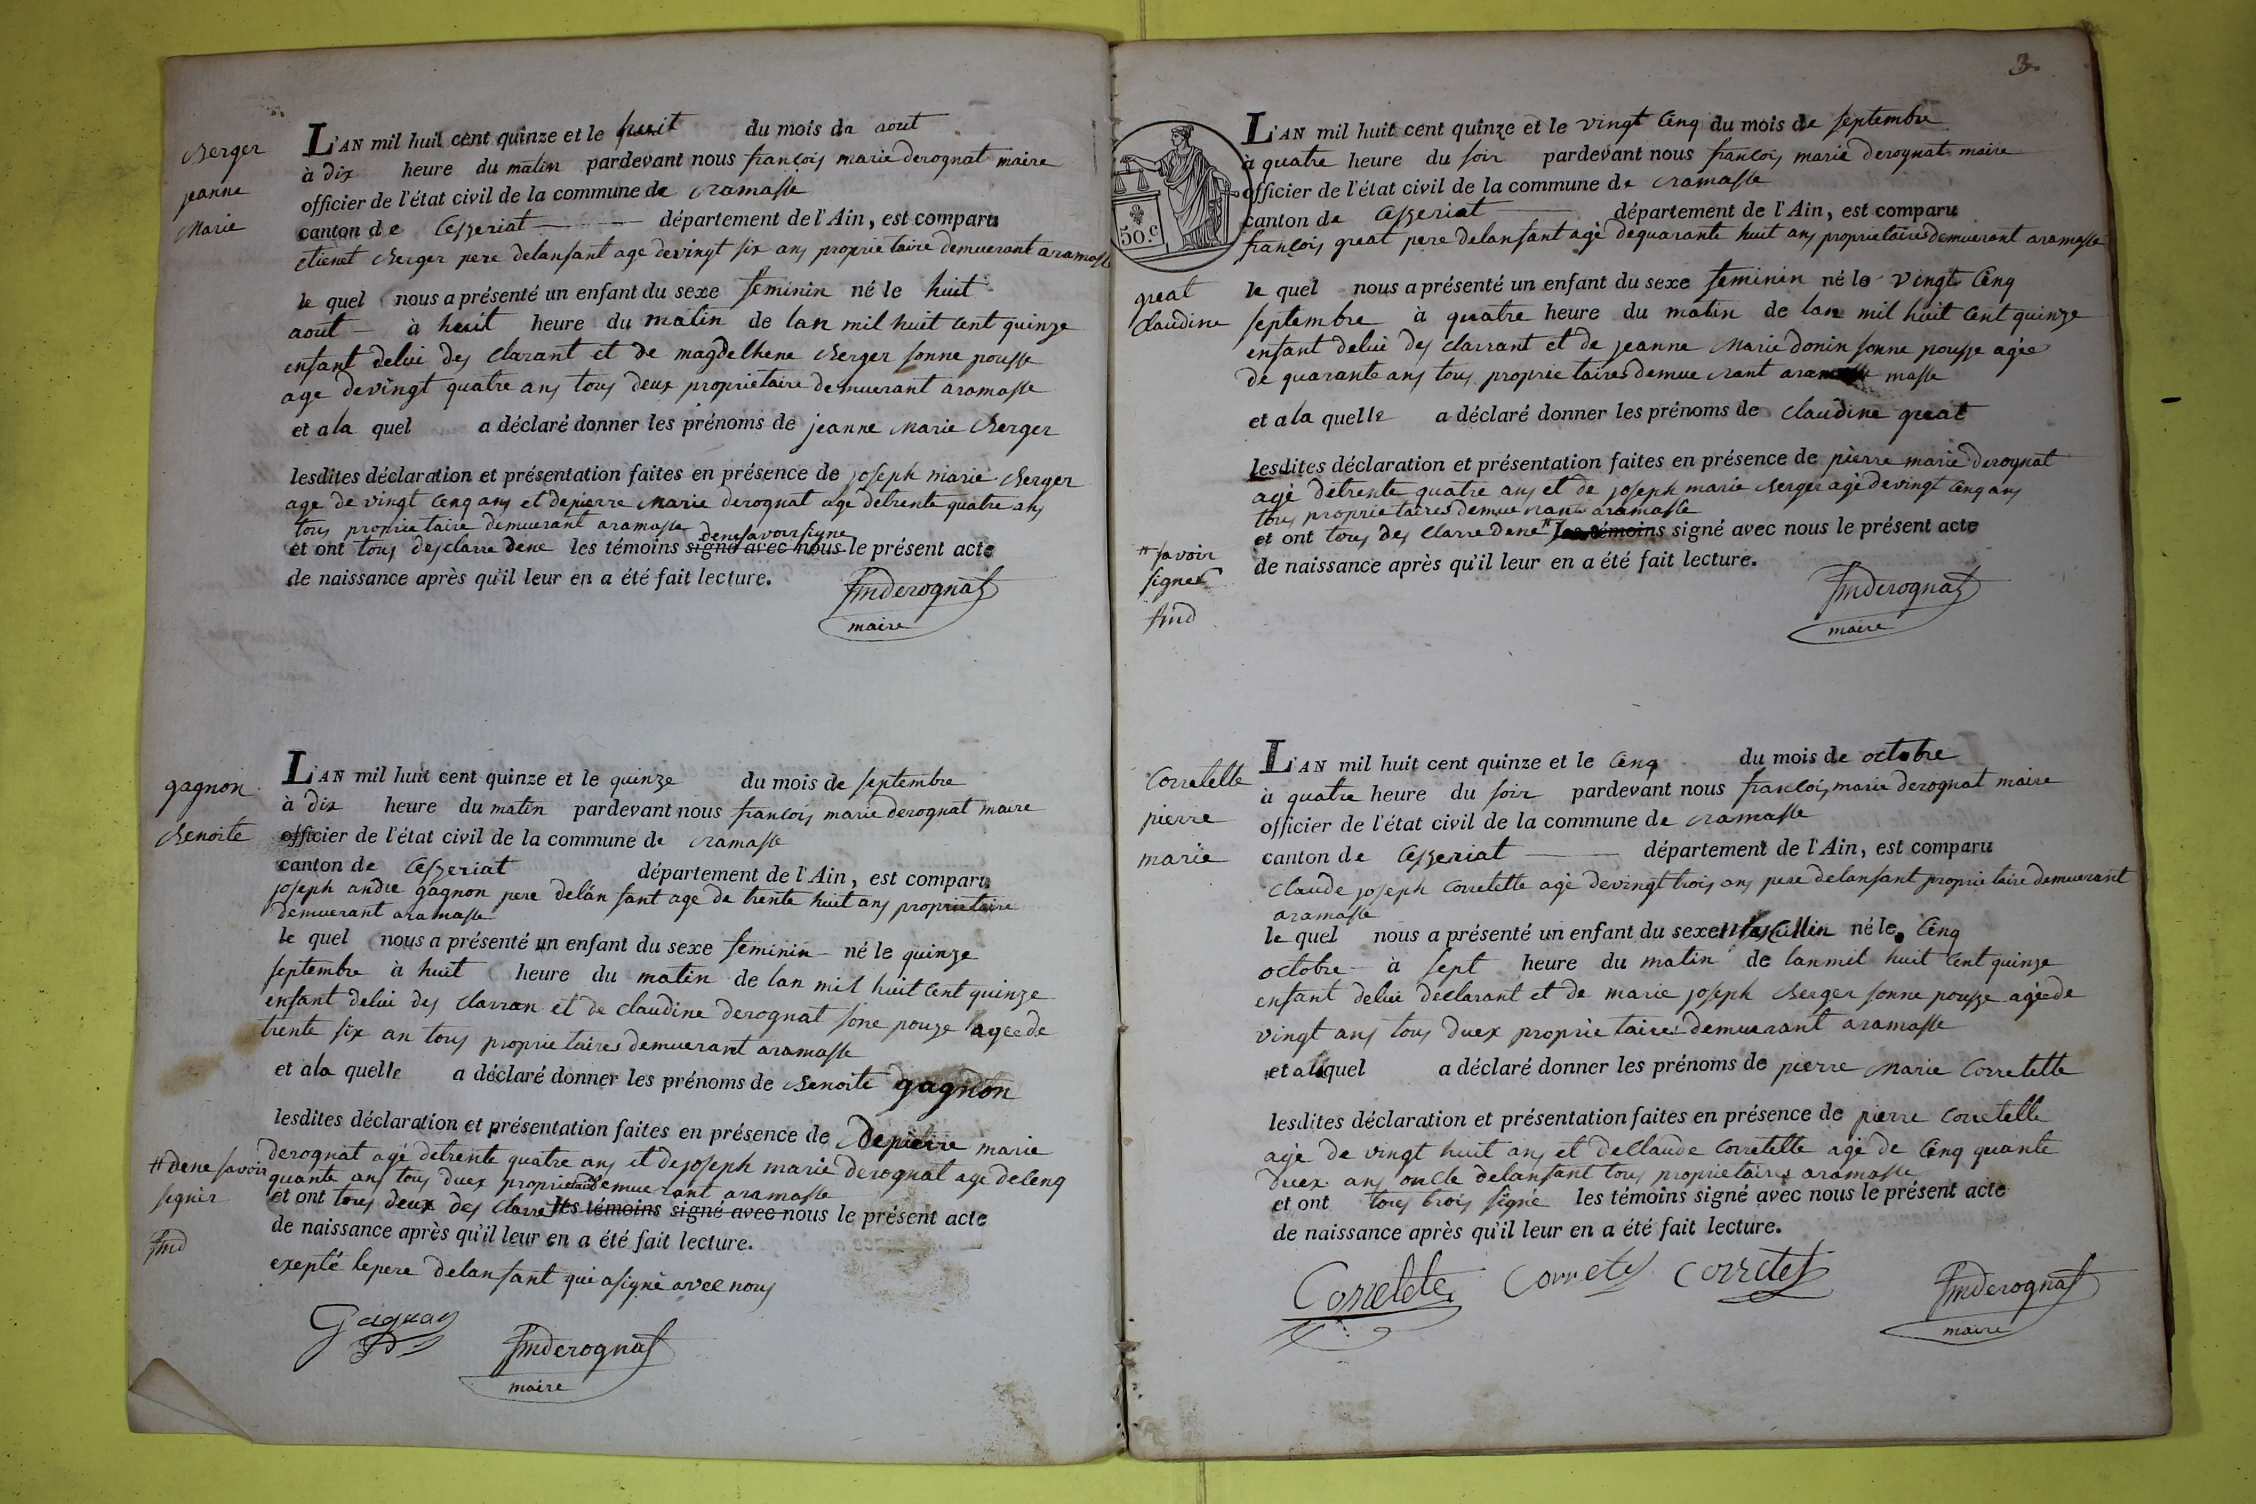 Berger
jeanne
Marie
L'AN mil huit cent quinze et le huit du mois de aout
à dix heure du matin pardevant nous françois marie derognat maire
officier de l'état civil de la commune de ramasse
canton de Ceyzeriat département de l'Ain, est comparu
etienet Berger pere delanfant age devingt six ans proprietaire demeurant aramasse
le quel nous a présenté un enfant du sexe feminin né le huit
aout à huit heure du matin de lan mil huit cent quinze
enfant delui des clarant et de magdelhene Berger sonne pousse
age devingt quatre ans tous deux proprietaire demeurant aramasse
et ala quel a déclaré donner les prénoms de jeanne Marie Berger
lesdites déclaration et présentation faites en présence de joseph marie Berger
age de vingt cenq ans et depierre Marie derognat age detrente quatre ans
tous proprietaire demeurant aramasse
denesavoirsigne
et ont tous desclarre dene les témoins signé avec nous le présent acte
de naissance après qu'il leur en a été fait lecture.
fmderognat
maire
gagnon
Benoite
L'AN mil huit cent quinze et le quinze du mois de septembre
à dix heure du matin pardevant nous françois marie derognat maire
officier de l'état civil de la commune de ramasse
canton de Ceyzeriat département de l'Ain, est comparu
joseph andre gagnon pere delanfant age de trente huit ans proprietaire
demeurant aramasse
le quel nous a présenté un enfant du sexe feminin né le quinze
septembre à huit heure du matin de lan mil huit cent quinze
enfant delui des clarran et de claudine derognat sone pouze agée de
trente six an tous proprietaires demeurant aramasse
et ala quelle a déclaré donner les prénoms de Benoite gagnon
lesdites déclaration et présentation faites en présence de Depierre marie
derognat agé detrente quatre ans et dejoseph marie derognat age decenq
quante ans tous duex proprietaire demeurant aramasse
et ont tous deux des clarre # les témoins signé avec nous le présent acte
# dene savoir
signer
fmd
de naissance après qu'il leur en a été fait lecture.
exepté lepere delanfant qui asigné avec nous
Gagnon
fmderognat
maire
3
50.c
great
Claudine
L'AN mil huit cent quinze et le vingt Cenq du mois de septembre
à quatre heure du soir pardevant nous françois marie derognat maire
officier de l'état civil de la commune de ramasse
canton de Ceyzeriat département de l'Ain, est comparu
françois great pere delanfant agé dequarante huit ans proprietaires demeurant aramasse
le quel nous a présenté un enfant du sexe feminin né le vingt Cenq
septembre à quatre heure du matin de lan mil huit cent quinze
enfant delui des clarrant et de jeanne Marie donin sonne pousse agée
de quarante ans tous proprietaires demeurant aramasse masse
et ala quelle a déclaré donner les prénoms de claudine great
lesdites déclaration et présentation faites en présence de pierre marie derognat
agé detrente quatre ans et de joseph marie Berger age devingt cenq ans
tous proprietaires demeurant aramasse
et ont tous des clarre dene # les témoins signé avec nous le présent acte
# savoir
signer
fmd
de naissance après qu'il leur en a été fait lecture.
fmderognat
maire
Corretelle
pierre
marie
L'AN mil huit cent quinze et le Cenq du mois de octobre
à quatre heure du soir pardevant nous françois marie derognat maire
officier de l'état civil de la commune de ramasse
canton de Ceyzeriat département de l'Ain, est comparu
claude joseph corretelle agé devingt trois ans pere delanfant proprietaire demeurant
aramasse
le quel nous a présenté un enfant du sexe Masculin né le Cenq
octobre à sept heure du matin de lanmil huit cent quinze
enfant delui declarant et de marie joseph Berger sonne pousse agée de
vingt ans tous duex proprietaires demeurant aramasse
et alaquel a déclaré donner les prénoms de pierre Marie Corretelle
lesdites déclaration et présentation faites en présence de pierre corretelle
agé de vingt huit ans et declaude corretelle agé de cenq quante
duex ans oncle delanfant tous proprietaires aramasse
et ont tous trois signé les témoins signé avec nous le présent acte
de naissance après qu'il leur en a été fait lecture.
Corretelle Corretel Corretel
fmderognat
maire